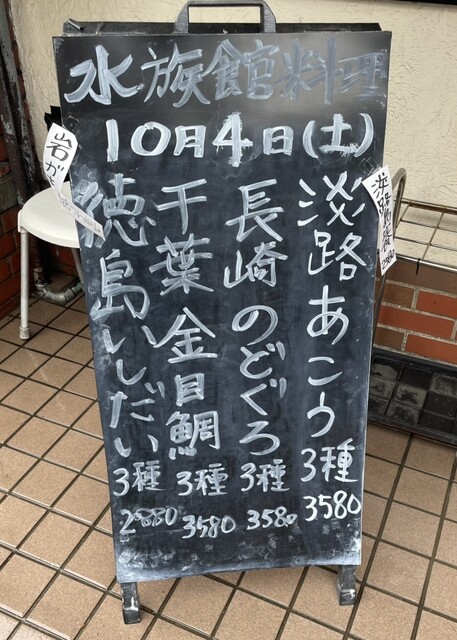 水族館料理
10月4日(土)
淡路あこう3種3580
長崎のどぐろ3種3580
千葉金目鯛3種3580
徳島いしだい3種2880
岩が